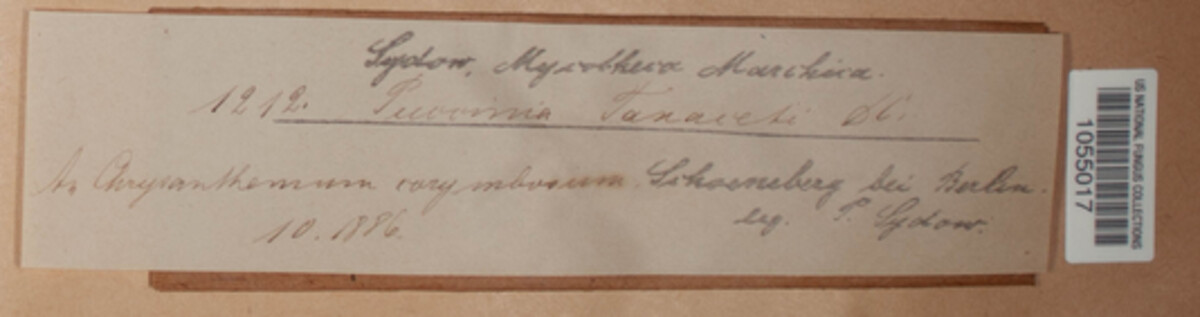 Sydow, Mycotheca Marchica.
1212. Puccinia Tanaceti DC.
An Chrysanthemum corymbosum. Schoeneberg bei Berlin.
10. 1886.
leg. P. Sydow.
US NATIONAL FUNGUS COLLECTIONS
1055017